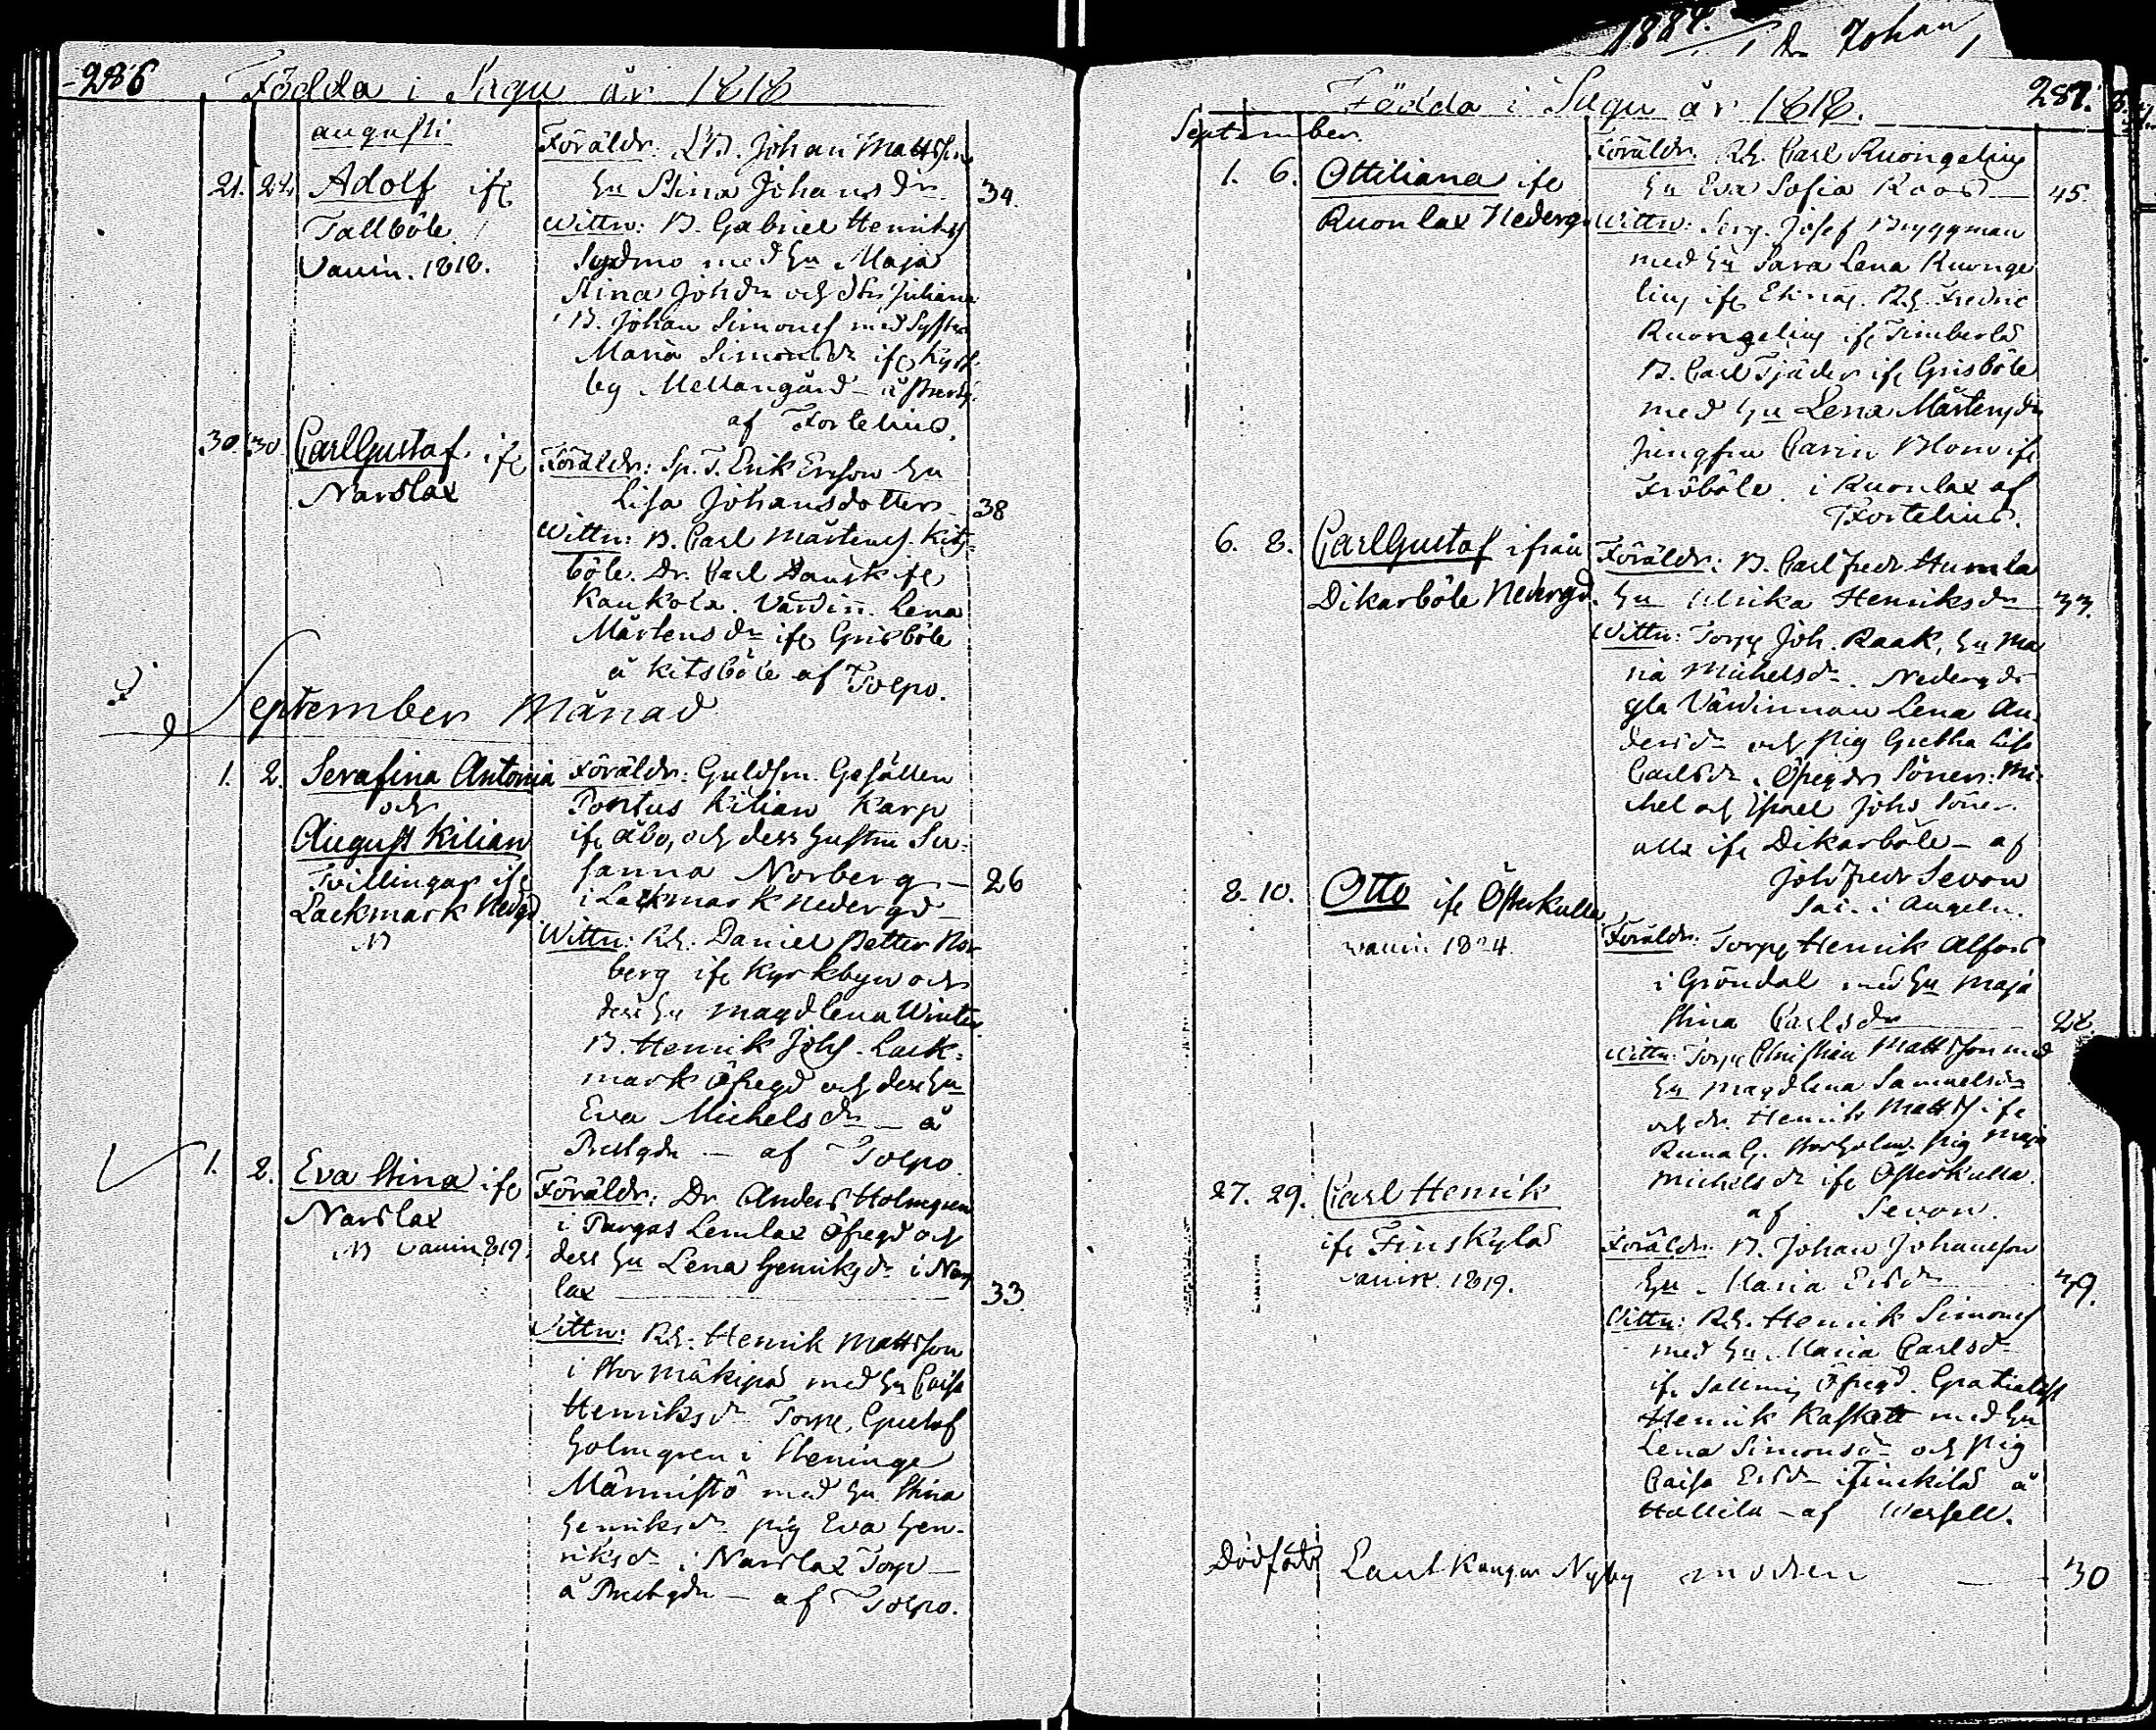 1884.
Johan
286
Födda i Sagu år 1818
augusti
21. 24. Adolf ifr
Tallböle
Vaccin. 1818.
Föräldr: Johan Mattsson
hu Stina Johansdr 34.
Wittn: B. Gabriel Henriks
med hu Maja
Stina Johdr och dr Juliana
B. Johan Simons med Syster
Maria Simonsdr ifr Kyrk-
by Mellangård
af Fortelius.
30. 30. Carl Gustaf ifr
Narslax
Föräldr: Sp. T. Erik Ersson hu
Lisa Johansdotter 38
Wittn: B. Carl Mårtens. Kits-
böle. Dr. Carl Dansk ifr
Kaukola. Värdin. Lena
Mårtensdr ifr Grisböle
å Kitsböle af Tolpo.
September Månad
1. 2. Serafina Antonia
och
August Kilian
Tvillingar ifr
Lackmark Nedgd.
Föräldr: Guldsm. Gesällen
Pontus Kilian Karp
ifr Åbo, och dess hustru Su-
sanna Norberg 26
i Lackmark Nedergd
Wittn: Rh. Daniel Petter Nor
berg ifr Kyrkbyn och
dess hu Magdlena Winter
B. Henrik Johs. Lack-
mark Öfregd och dess hu
Eva Michelsdr å
Prestgdn af Tolpo.
1. 2. Eva Stina ifr
Narslax
Vaccin 1819.
Föräldr: Dr Anders Holmgren
i Pargas Lemlax Öfregd och
dess hu Lena Henriksdr i Nars
lax 33.
Wittn: Rh. Henrik Mattsson
i Stormäkipää med hu Caisa
Henriksdr Torp. Gustaf
Holmgren i Heninge
Männistö med hu Stina
Henriksdr pig Eva Hen-
riksdr i Narslax Torp
å Prestgdn af Tolpo.
Födda i Sagu år 1818.
287.
September
1. 6. Ottiliana ifr
Ruonlax Nederg.
Föräldr. Rh. Carl Ruongelius
hu Eva Sofia Roos 45.
Wittn: Serg. Josef Bryggman
med hu Sara Lena Ruonge
lius ifr Ekenäs. Rh. Fredric
Ruongelius ifr Timberlä
B. Carl Tjäder ifr Grisböle
med hu Lena Mårtensdr
Jungfru Carin Blom ifr
Fröböle. i Ruonlax af
Fortelius.
6. 8. Carl Gustaf ifrån
Dikarböle Nedergd.
Föräldr: B. Carl Fredr Humla
hu Ulrika Henriksdr 33.
Wittn: Torp Joh. Raak, hu Ma
ria Michelsdr. Nedergds
gla Värdinnan Lena An-
dersdr och pig Gretha Lisa
Carlsdr. Öfregds Sönen: Mi-
chel och Israel Johs Söner.
alla ifr Dikarböle af
Joh Fredr Sevon
Sac. i Angeln.
8. 10. Otto ifr Österkulla
vaccin. 1824.
Föräldr: Torp Henrik Alfors
i Gröndal med hu Maja
Stina Carlsdr 28.
Wittn: Torp Christian Mattsson med
hu Magdlena Samuelsdr
och dr. Henrik Matts ifr
Runa G. pig Maja
Michelsdr ifr Österkulla.
af Sevon.
27. 29. Carl Henrik
ifr Finskylä
vaccin. 1819.
Föräldr: B. Johan Johansson
hu Maria Ersdr 39.
Wittn: Rh. Henrik Simons
med hu Maria Carlsdr
ifr Sallmis Öfregd. Gratialist
Henrik Kaskett med hu
Lena Simonsdr och pig
Caisa Ersdr i Finskilä å
Hallila af Wersell.
Dödfödt Lautkangar Nyby modren 30